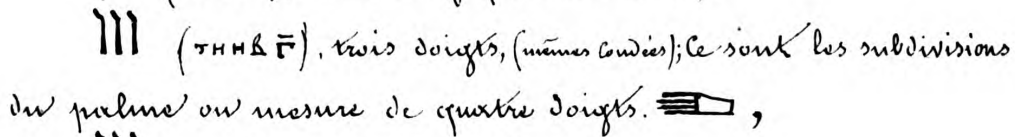 (ⲧⲏⲏⲃ ⲅ̄), trois doigts, (mêmes coudées); Ce sont les subdivisions
du palme ou mesure de quatre doigts. ,